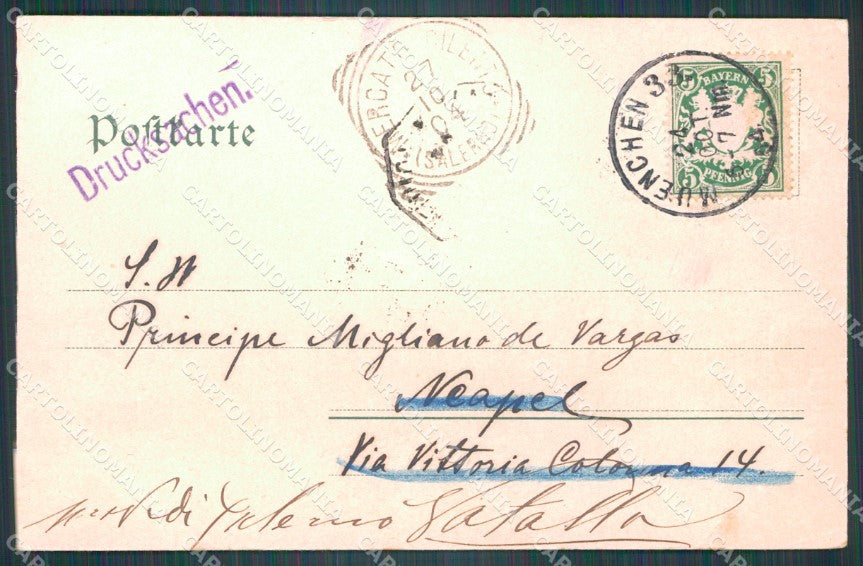 Postkarte
Drucksachen.
MERCATO CILENTO
27
10
04
(SALERNO)
MUENCHEN 33.
24
OCT
7 Nm
04
BAYERN
5 5
5 5
PFENNIG
S. H
Principe Migliano de Vargas
Neapel
Via Vittoria Colonna 14.
di Vatolla
CARTOLINOMANIA